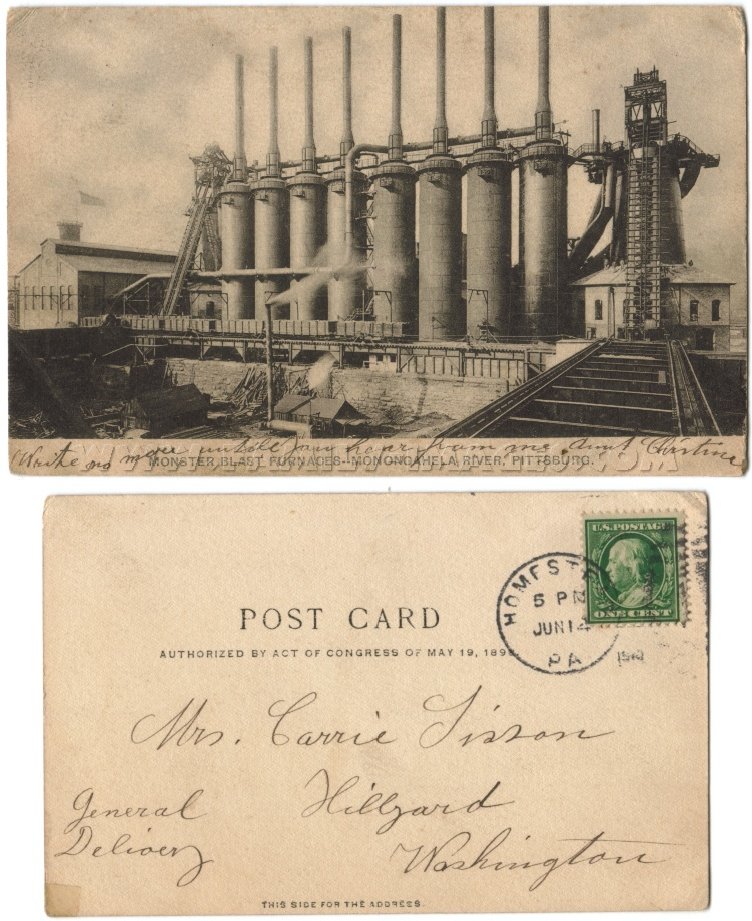 Write no more untill you hear from me. Aunt Christina
MONSTER BLAST FURNACES--MONONGAHELA RIVER, PITTSBURG.
U.S. POSTAGE
ONE CENT
HOMESTE
5 PM
JUN 14
PA
POST CARD
AUTHORIZED BY ACT OF CONGRESS OF MAY 19, 1898
Mrs. Carrie Sisson
General Hillyard
Delivery Washington
THIS SIDE FOR THE ADDRESS.